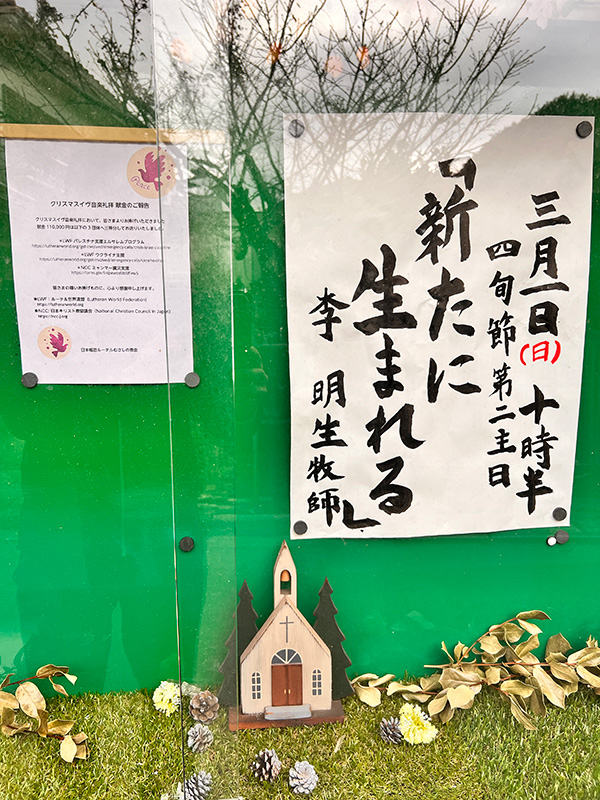 三月一日(日) 十時半
四旬節第二主日
「新たに
生まれる」
李 明生牧師
Peace
クリスマスイヴ音楽礼拝 献金のご報告
クリスマスイヴ音楽礼拝において、皆さまよりお捧げいただきました
献金 110,000円は以下の3団体へ三等分してお送りいたしました。
★LWF パレスチナ支援エルサレムプログラム
★LWF ウクライナ支援
★NCC ミャンマー震災支援
皆さまの尊いお捧げものに、心より感謝申し上げます。
★LWF:ルーテル世界連盟 (Lutheran World Federation)
https://lutheranworld.org
★NCC: 日本キリスト教協議会 (National Christian Council in Japan)
https://ncc-j.org
日本福音ルーテルむさしの教会